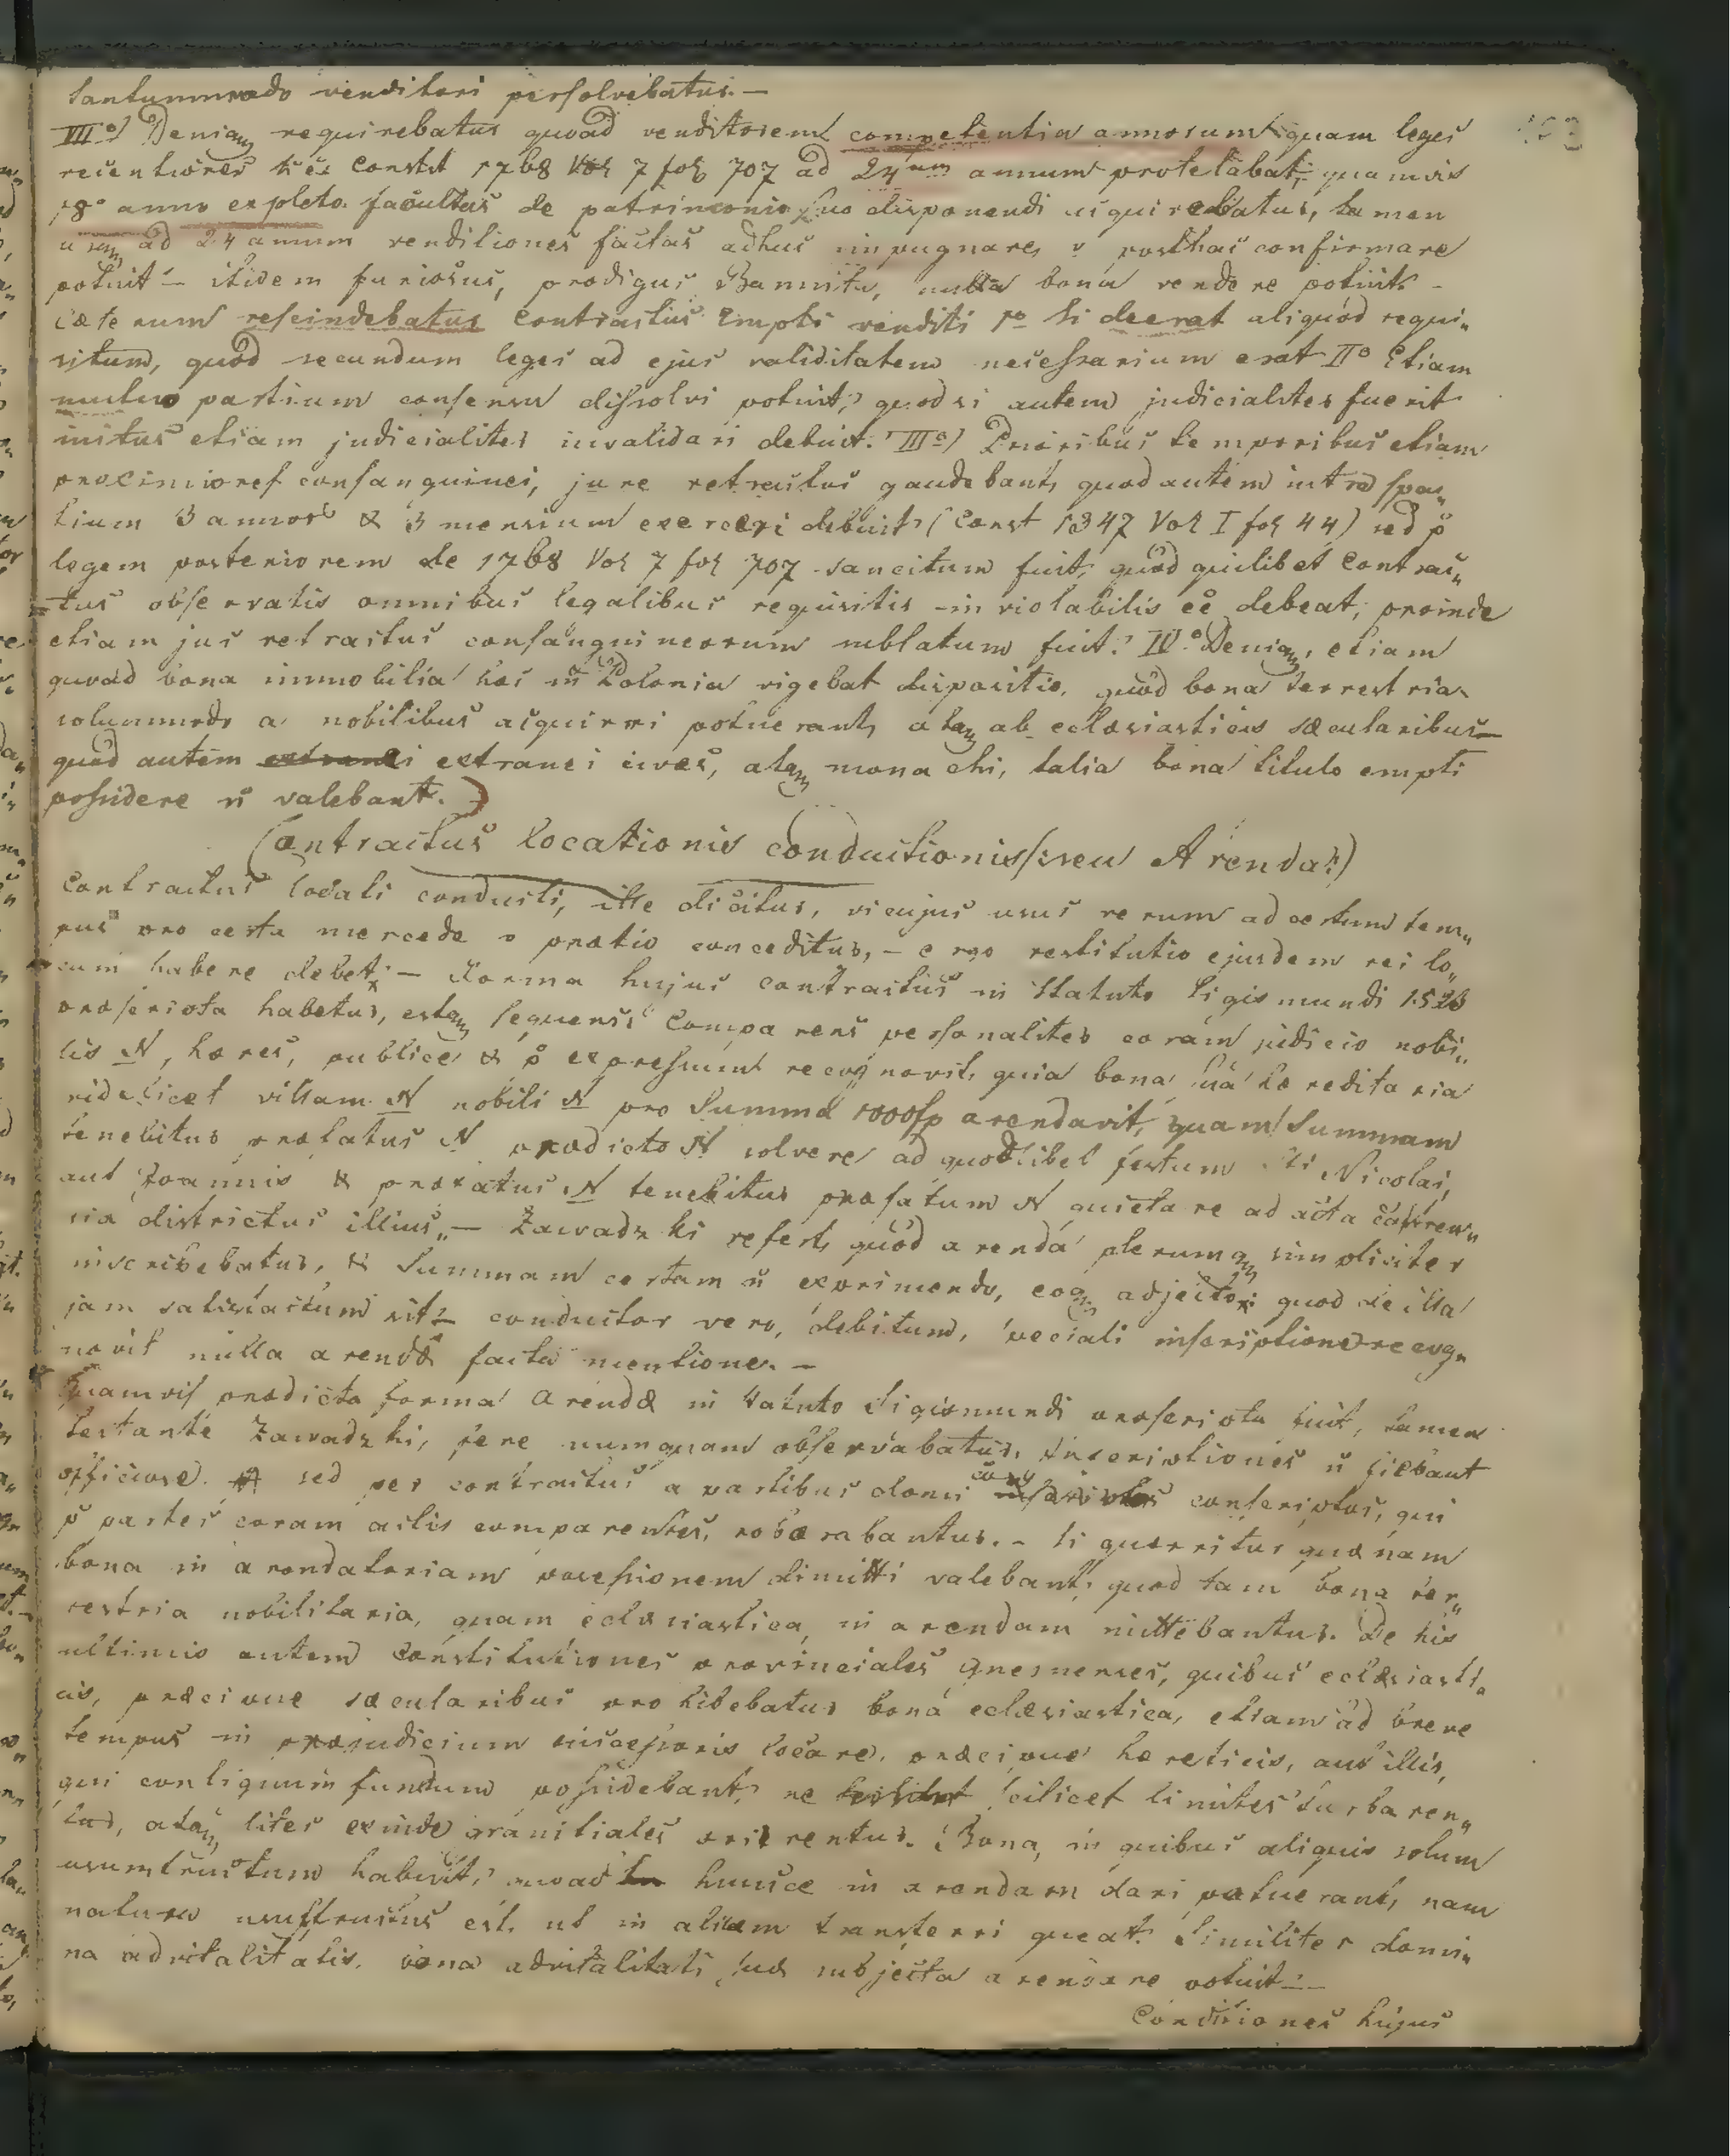 tantummodo venditori persolvebatur. —
VIIo) Deniqm requirebatur quoad venditorem competentia annorum, quam leges
recentiores Const 1768 Vol 7 fol 707 ad 24um annum protelabat, quamvis
18o anno expleto facultas de patrimonio suo disponendi acquirebatur, tamen
usqm ad 24 annum venditiones factas adhuc impugnare, v posthac confirmare
potuit — itidem furiosus, prodigus Bannitus, nulla bona vendere potuit. —
Cæterum rescindebatur Contractus Empti venditi 1o Si deerat aliquod requi„
situm, quod secundum leges ad ejus validitatem necessarium erat IIo Etiam
mutuo partium consensu dissolvi potuit, quodsi autem judicialiter fuerit
initus etiam judicialiter invalidari debuit. IIIo) Prioribus temporibus etiam
proximiores consanguinei, jure retractus gaudebant, quod autem intra spa„
tium 3 annor & 3 mensium exerceri debuit (Const 1347 Vol I fol 44) sed p
legem posteriorem de 1768 Vol 7 fol 707 sancitum fuit, quod quilibet Contrac„
tus observatis omnibus legalibus requisitis inviolabilis ee debeat, proinde
etiam jus retractus consanguineorum sublatum fuit. IVo Deniqm, etiam
quoad bona immobilia hæc in Polonia vigebat dispositio, quod bona terrestria
solummodo a nobilibus acquiri potuerant, atqm ab eclæsiasticis sæcularibus —
quod autem extranei cives, atqm monachi, talia bona titulo empti
possidere n valebant.
Contractus locationis conductionis /:seu Arenda:/
Contractus locati conducti, ille dicitur, vi cujus usus rerum ad certum tem„
pus pro certa mercede v prætio conceditur, — ergo restitutio ejusdem rei lo„
cum habere debet; — Forma hujus contractus in Statuto Sigismundi 1526
præscripta habetur, estqm sequens: Comparens personaliter coram judicio nobi„
lis N, hæres, publice & p expressum recognovit, quia bona sua hæreditaria
videlicet villam N nobili N pro Summa 1000 fp arendavit, quam Summam
tenebitur prælatus N prædicto N solvere ad quodlibet festum Sti Nicolai,
aut Joannis & præfatus N tenebitur præfatum N quietare ad acta castren„
sia districtus illius„ — Zawadzki refert, quod arenda plerumqm simpliciter
inscribebatur, & Summam certam n exprimendo, eoqm adjecto: quod de illa
jam satisfactum sit — conductor vero, debitum, speciali inscriptione recog„
novit nulla arendæ facta mentione. —
Quamvis prædicta forma Arendæ in Statuto Sigismundi præscripta fuit, tamen
testante Zawadzki, fere numquam observabatur, Inscriptiones n fiebant
officiose. sed per contractus a partibus domi conscriptos, qui
p partes coram actis comparentes, roborabantur. — Si quæritur quænam
bona in arendatoriam possessionem dimitti valebant, quod tam bona ter„
restria nobilitaria, quam eclæsiastica, in arendam mittebantur. De his
ultimis autem Constitutiones provinciales Gnesnenses, quibus eclæsiasti„
cis, præcipue sæcularibus prohibebatur bona eclæsiastica, etiam ad breve
tempus in præjudicium successoris locare, præcipue hæreticis, aut illis,
qui contiguum fundum possidebant, ne scilicet limites turbaren„
tur, atqm lites exinde granitiales orirentur. Bona, in quibus aliquis solum
usumfructum habuit, quoad hunce in arendam dari potuerant, nam
natura ususfructus est, ut in alium transferri queat. Similiter domi„
na advitalitatis, bona advitalitati suæ subjecta arendare potuit —
Conditiones hujus